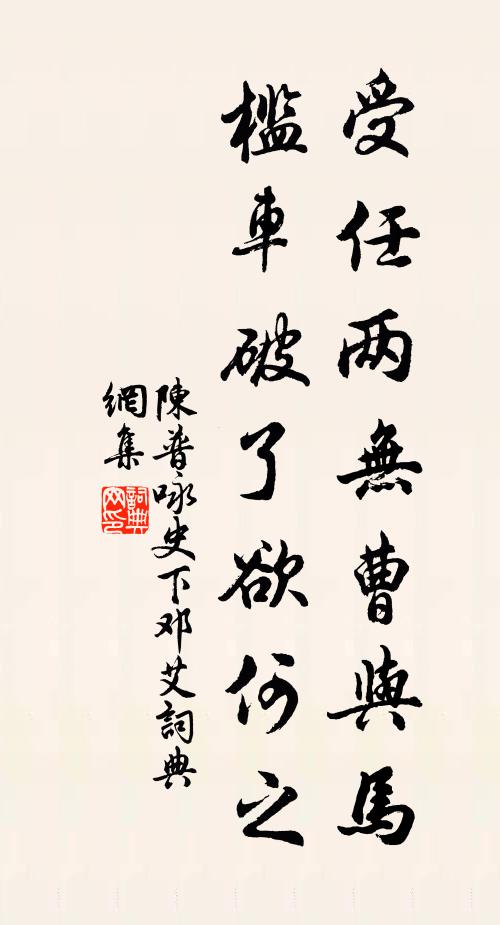 受任两無曹與馬
檻車破了欲何之
陳普咏史下邓艾詞典
網集
詞典
网印